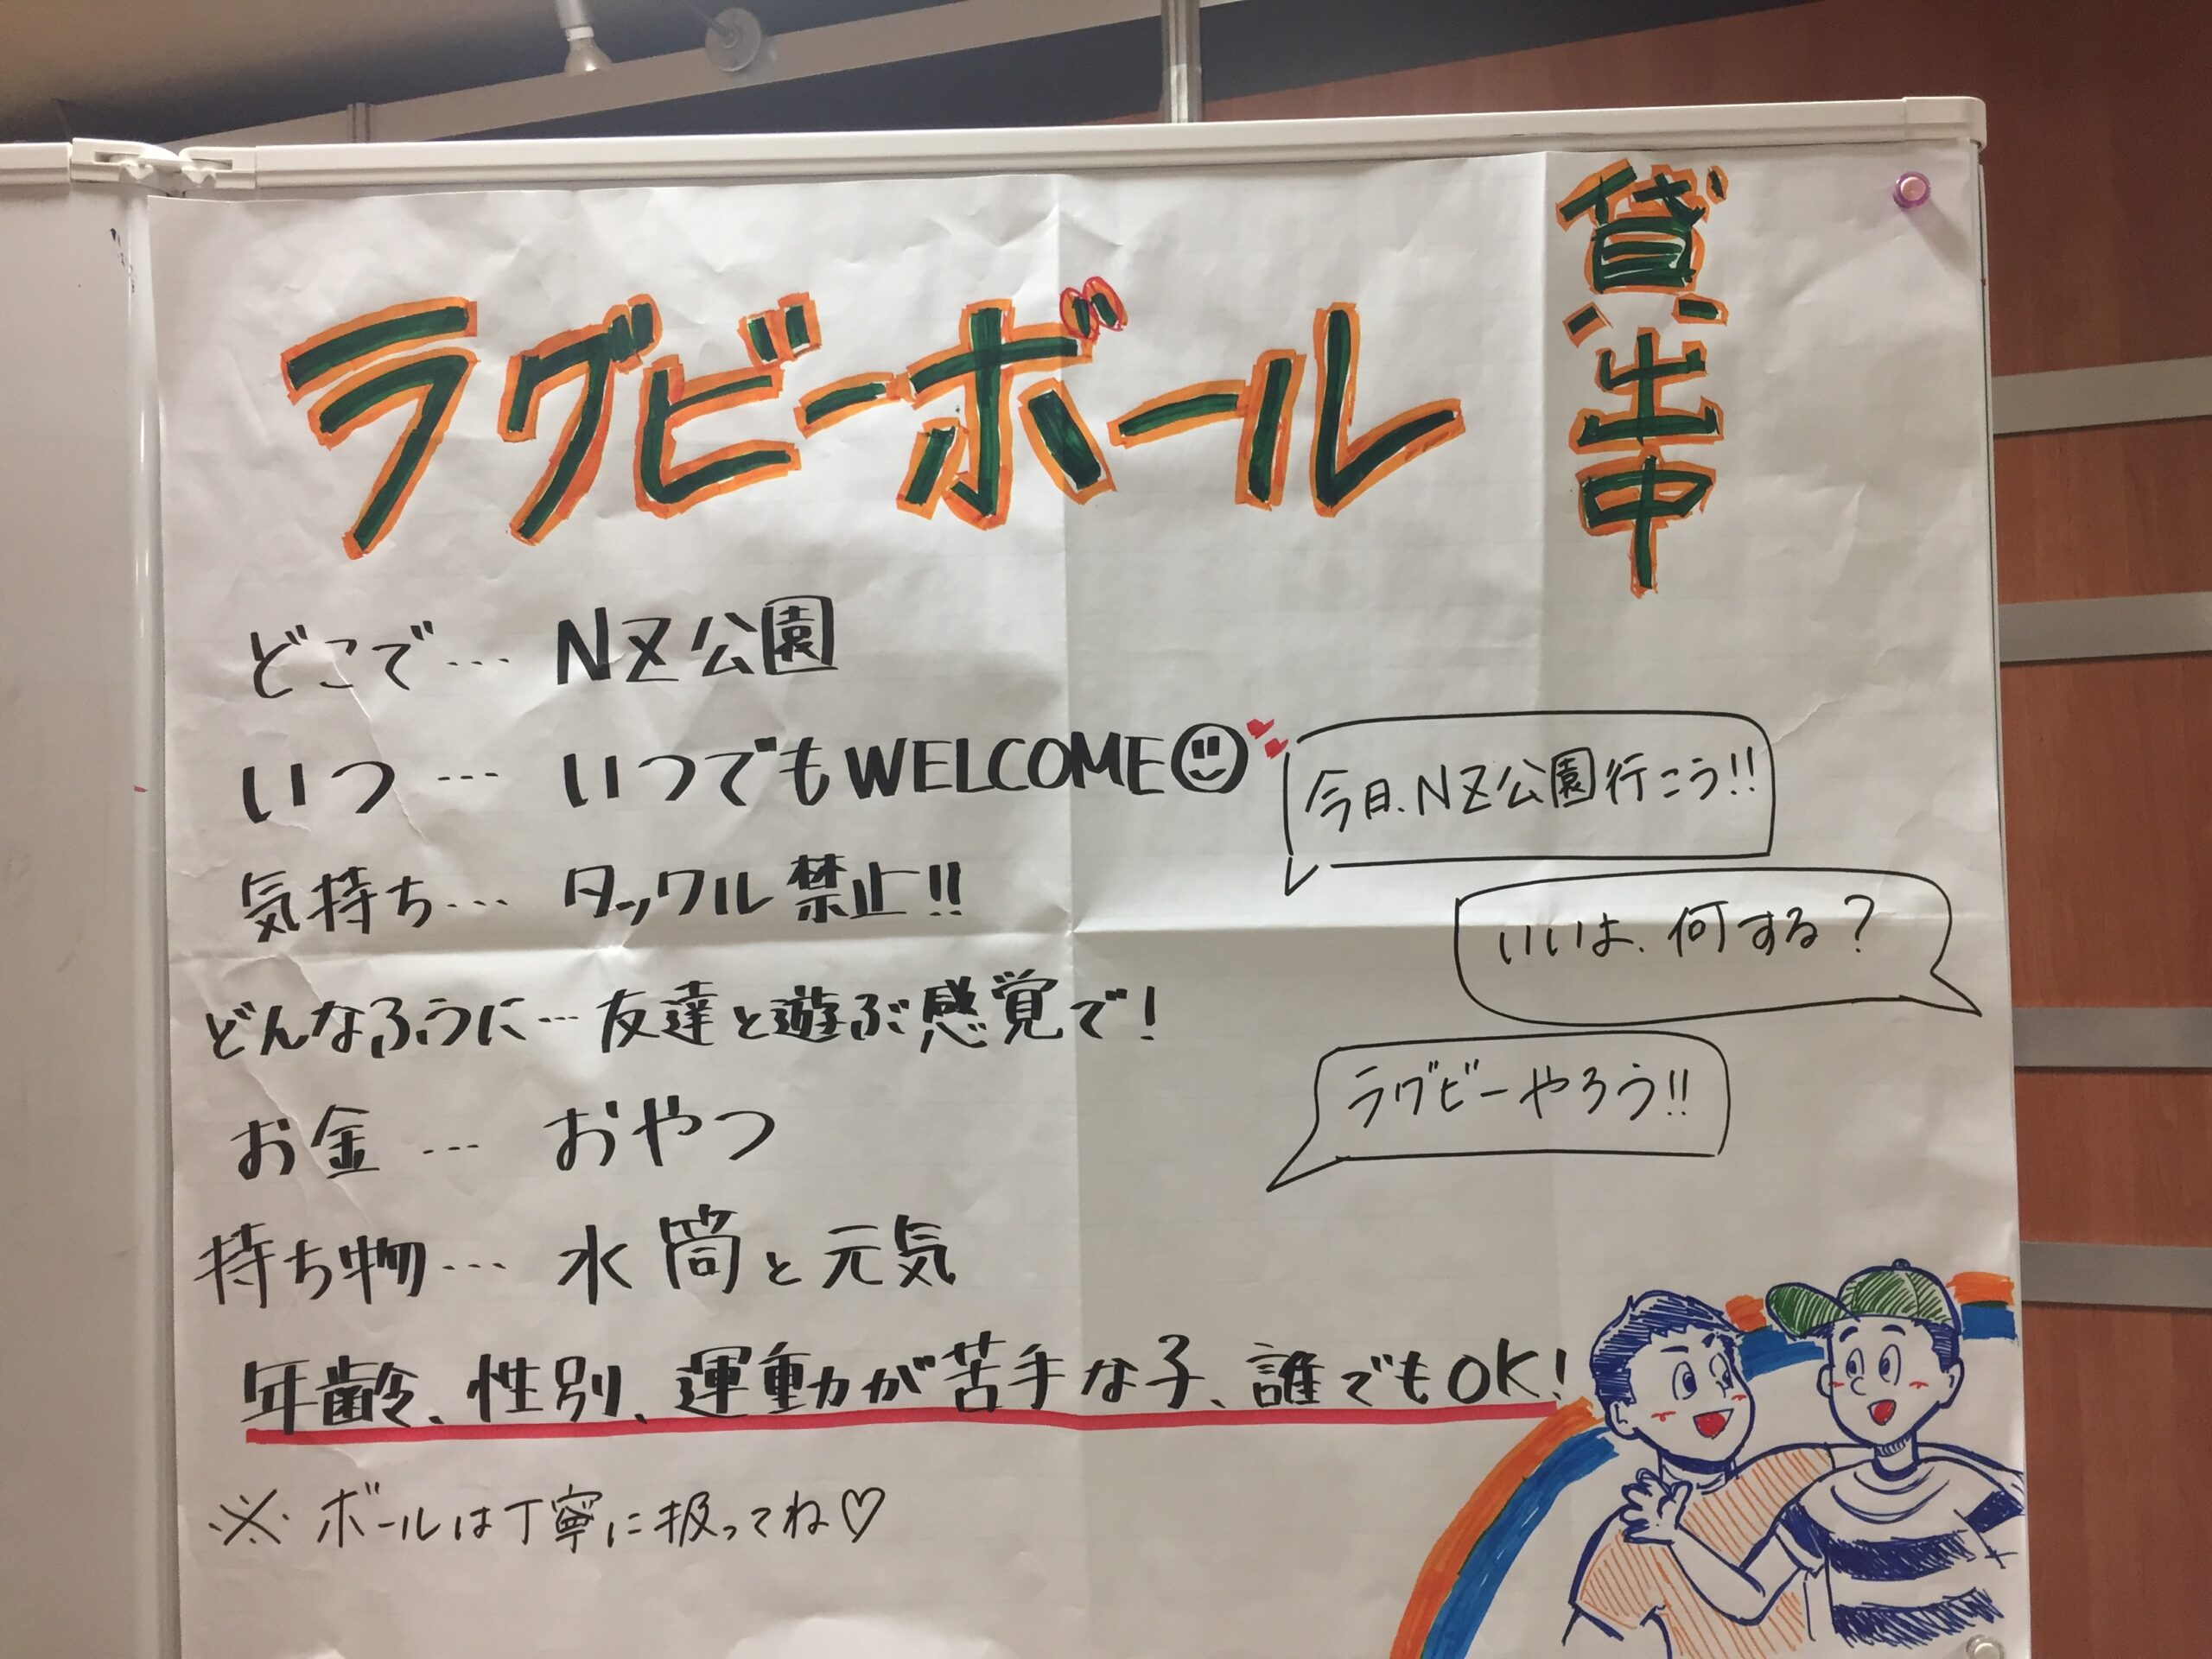 ラグビーボール
貸出中
どこで… NZ公園
いつ … いつでもWELCOME
気持ち… タックル禁止!!
どんなふうに…友達と遊ぶ感覚で!
お金 … おやつ
持ち物… 水筒と元気
年齢、性別、運動が苦手な子、誰でもOK!
※ ボールは丁寧に扱ってね♡
今日、NZ公園行こう!!
いいよ、何する?
ラグビーやろう!!